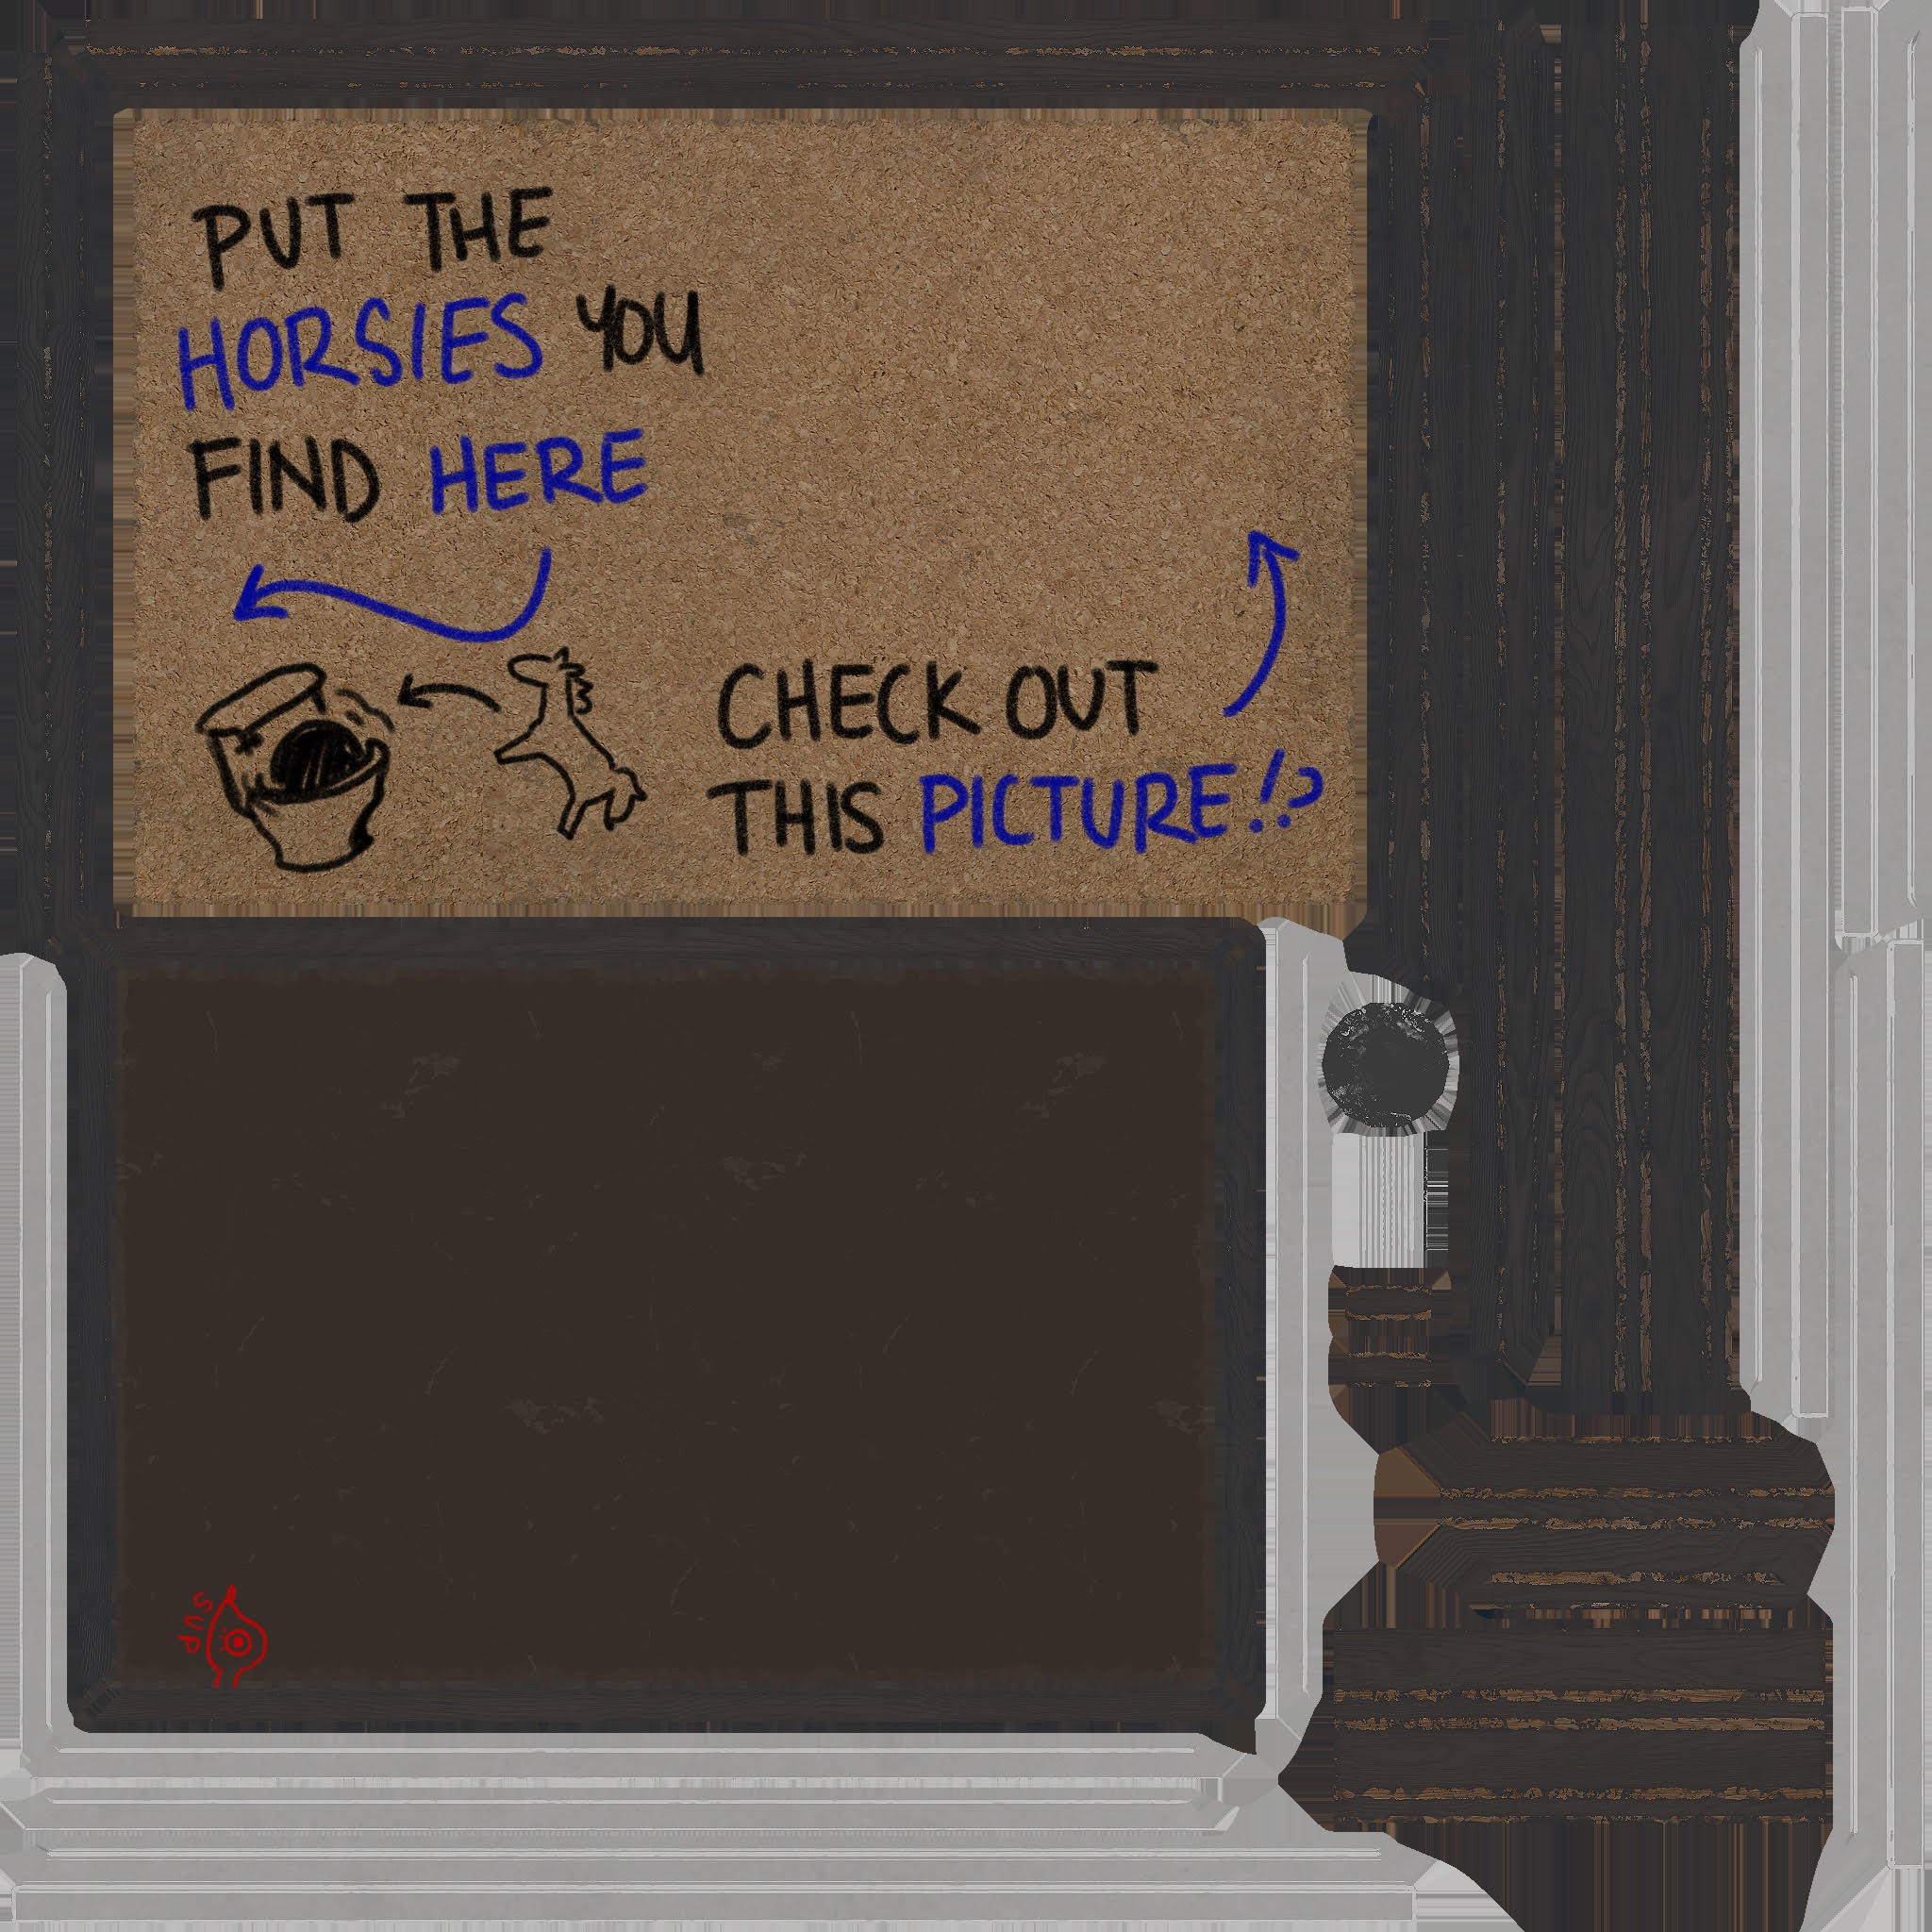 PUT THE
HORSIES YOU
FIND HERE
CHECK OUT
THIS PICTURE!?
SUP